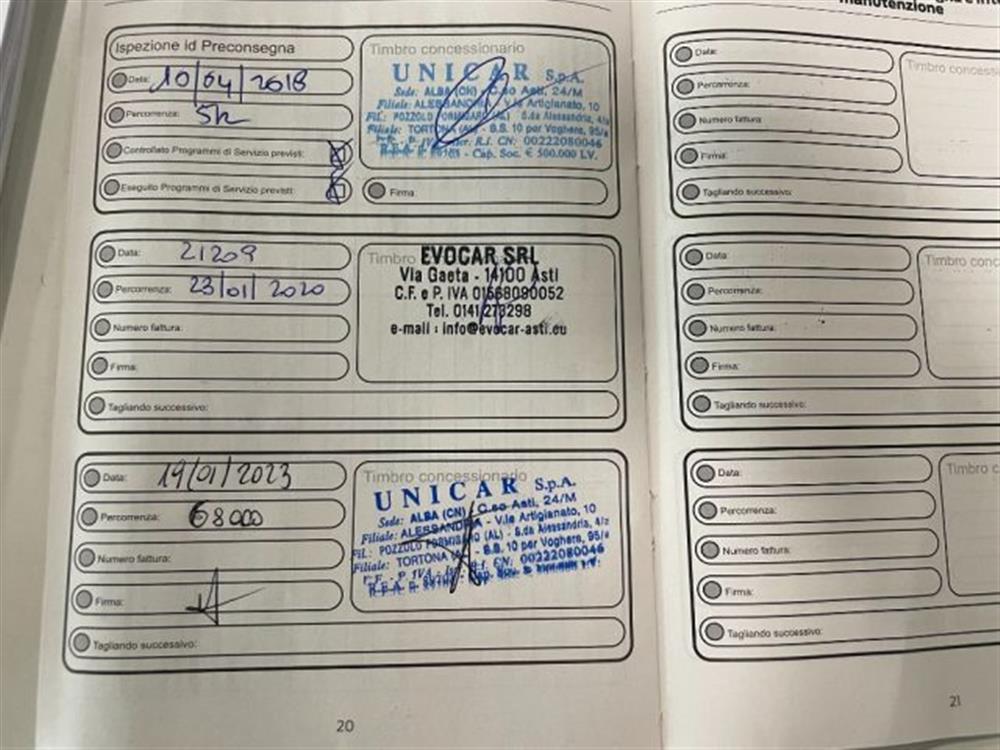 manutenzione
Ispezione id Preconsegna
Data: 10/04/2018
Percorrenza:
Controllato Programmi di Servizio previsti:
Eseguito Programmi di Servizio previsti:
Timbro concessionario
UNICAR S.p.A.
Sede: ALBA (CN) C.so Asti, 24/M
Filiale: ALESSANDRIA - V.le Artigianato, 10
Fil.: POZZOLO FORMIGARO (AL) - S.da Alessandria,
Filiale: TORTONA (AL) - S.S. 10 per Voghera, 95/a
R.I. CN: 00222080046
Cap. Soc. € 500.000 I.V.
Firma:
Data: 21209
Percorrenza: 23/01/2020
Numero fattura:
Firma:
Tagliando successivo:
Timbro
EVOCAR SRL
Via Gaeta - 14100 Asti
C.F. e P. IVA 01568090052
Tel. 0141/273298
e-mail : info@evocar-asti.eu
Data: 19/01/2023
Percorrenza: 68000
Numero fattura:
Firma:
Tagliando successivo:
Timbro concessionario
UNICAR S.p.A.
Sede: ALBA (CN) C.so Asti, 24/M
Filiale: ALESSANDRIA - V.le Artigianato, 10
Fil.: POZZOLO FORMIGARO (AL) - S.da Alessandria,
Filiale: TORTONA (AL) - S.S. 10 per Voghera, 95/a
C.F. - P. IVA CN: 00222080046
20
Data:
Percorrenza:
Numero fattura:
Firma:
Tagliando successivo:
Timbro
Data:
Percorrenza:
Numero fattura:
Firma:
Tagliando successivo:
Timbro
Data:
Percorrenza:
Numero fattura:
Firma:
Tagliando successivo:
Timbro
21